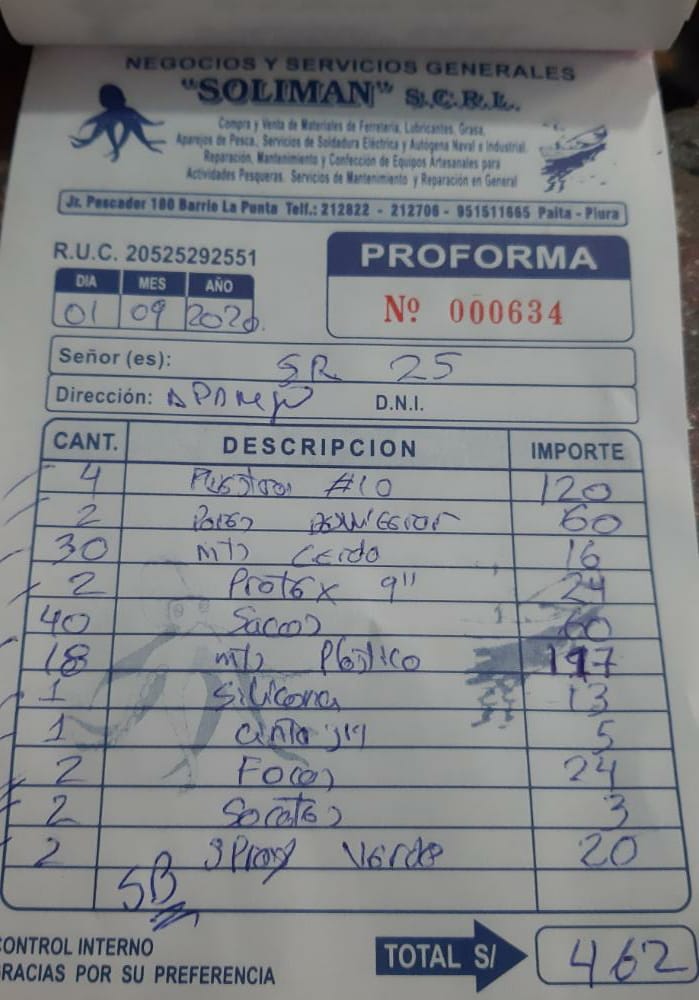 NEGOCIOS Y SERVICIOS GENERALES
"SOLIMAN" S.C.R.L.
Compra y Venta de Materiales de Ferretería, Lubricantes, Grasa,
Aparejos de Pesca, Servicios de Soldadura Eléctrica y Autógena Naval e Industrial.
Reparación, Mantenimiento y Confección de Equipos Artesanales para
Actividades Pesqueras. Servicios de Mantenimiento y Reparación en General
Jr. Pescador 180 Barrio La Punta Telf.: 212822 - 212706 - 951511665 Paita - Piura
R.U.C. 20525292551
PROFORMA
DIA MES AÑO
01 09 2020
Nº 000634
Señor (es): SR 25
Dirección: D.N.I.
CANT. DESCRIPCION IMPORTE
4 #10 120
2 60
30 mts 16
2 Protex 9" 24
40 Sacos 60
18 mts Plástico 117
1 Silicona 13
1 cinta 5
2 Focos 24
2 Socates 3
2 Spray Verde 20
SB
CONTROL INTERNO
GRACIAS POR SU PREFERENCIA
TOTAL S/ 462